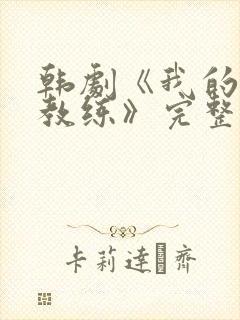 韩劇《我的
教练》完整
卡莉達·齊